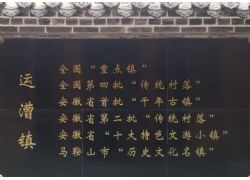 运漕镇
全国“重点镇”
全国第四批“传统村落”
安徽省首批“千年古镇”
安徽省第二批“传统村落”
安徽省“十大特色文游小镇”
马鞍山市“历史文化名镇”